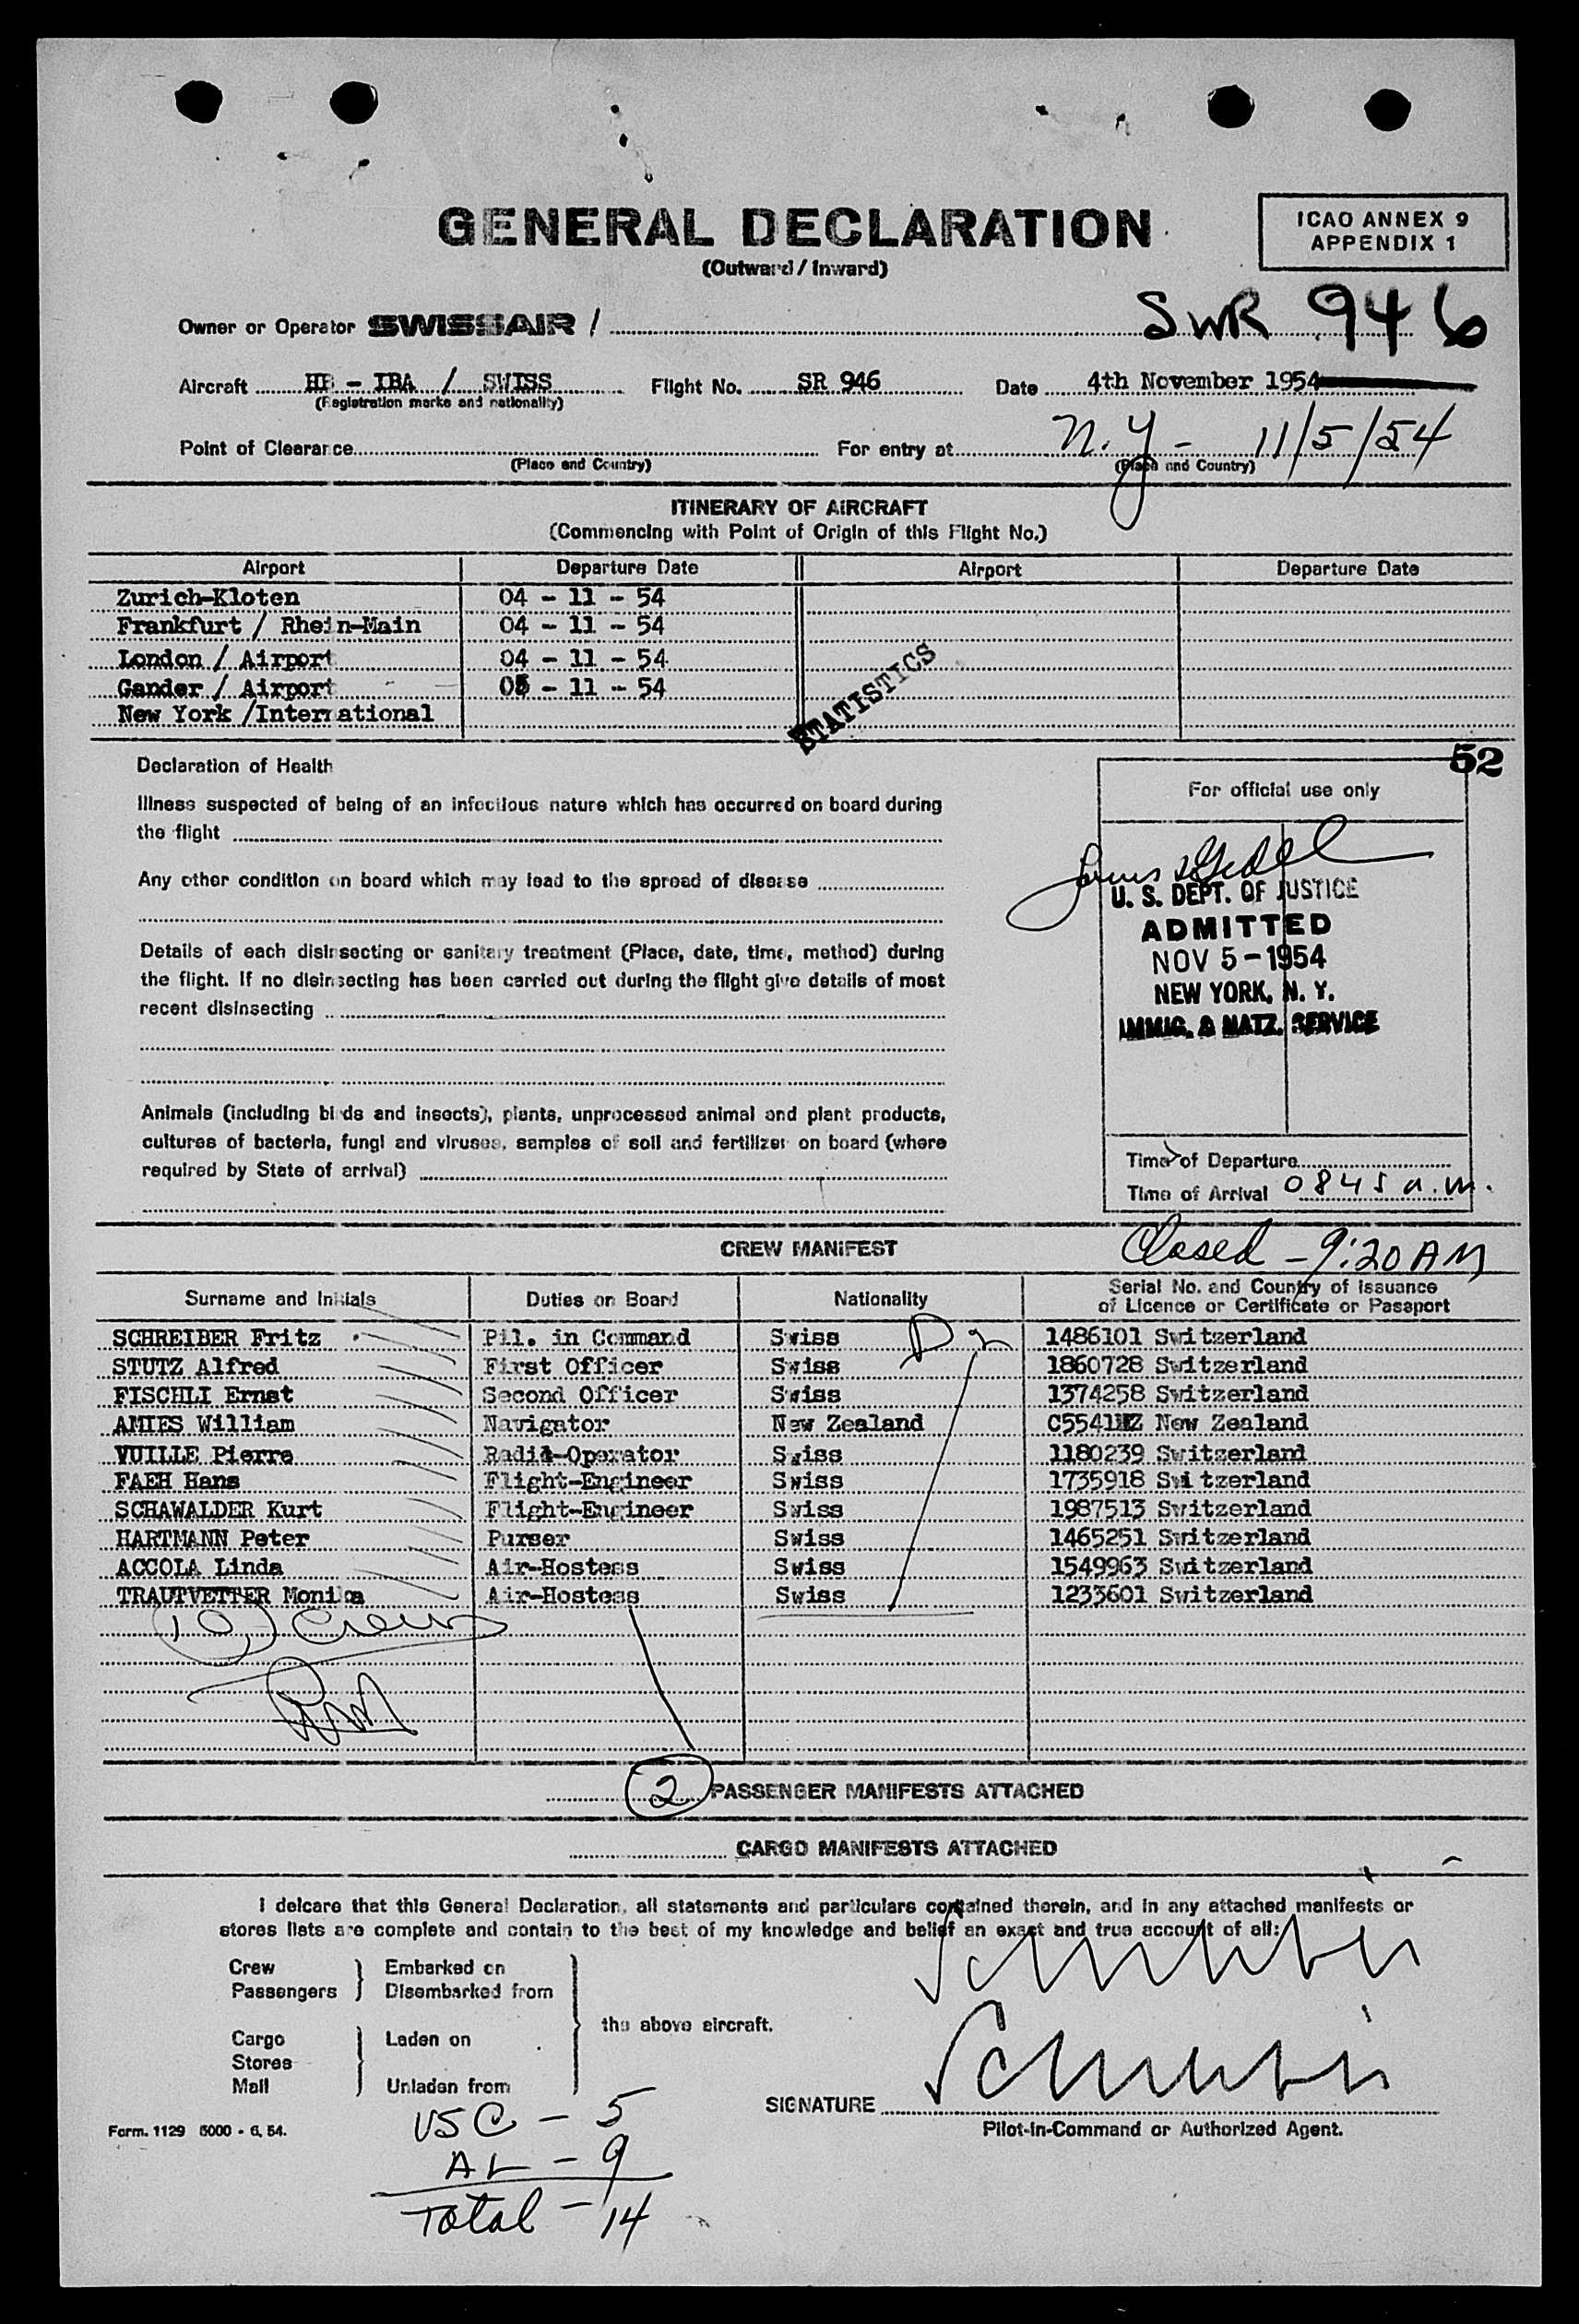 GENERAL DECLARATION
(Outward / Inward)
ICAO ANNEX 9
APPENDIX 1
Owner or Operator SWISSAIR / SWR 946
Aircraft HB - IBA / SWISS Flight No. SR 946 Date 4th November 1954
(Registration marks and nationality)
Point of Clearance For entry at N.Y - 11/5/54
(Place and Country) (Place and Country)
ITINERARY OF AIRCRAFT
(Commencing with Point of Origin of this Flight No.)
Airport Departure Date Airport Departure Date
Zurich-Kloten 04 - 11 - 54
Frankfurt / Rhein-Main 04 - 11 - 54
London / Airport 04 - 11 - 54
Gander / Airport 05 - 11 - 54
New York /International
STATISTICS
52
Declaration of Health
Illness suspected of being of an infectious nature which has occurred on board during
the flight
Any other condition on board which may lead to the spread of disease
Details of each disinsecting or sanitary treatment (Place, date, time, method) during
the flight. If no disinsecting has been carried out during the flight give details of most
recent disinsecting
Animals (including birds and insects), plants, unprocessed animal and plant products,
cultures of bacteria, fungi and viruses, samples of soil and fertilizer on board (where
required by State of arrival)
For official use only
U. S. DEPT. OF JUSTICE
ADMITTED
NOV 5 - 1954
NEW YORK, N. Y.
IMMIG. & NATZ. SERVICE
Time of Departure
Time of Arrival 0845 a.m.
CREW MANIFEST Closed - 9:20 AM
Surname and Initials Duties on Board Nationality Serial No. and Country of Issuance
of Licence or Certificate or Passport
SCHREIBER Fritz Pil. in Command Swiss 1486101 Switzerland
STUTZ Alfred First Officer Swiss 1860728 Switzerland
FISCHLI Ernst Second Officer Swiss 1374258 Switzerland
AMIES William Navigator New Zealand New Zealand
VUILLE Pierre Radio-Operator Swiss 1180239 Switzerland
FAEH Hans Flight-Engineer Swiss 1735918 Switzerland
SCHAWALDER Kurt Flight-Engineer Swiss 1987513 Switzerland
HARTMANN Peter Purser Swiss 1465251 Switzerland
ACCOLA Linda Air-Hostess Swiss 1549963 Switzerland
TRAUTVETTER Monika Air-Hostess Swiss 1233601 Switzerland
10) Crew
2 PASSENGER MANIFESTS ATTACHED
CARGO MANIFESTS ATTACHED
I delcare that this General Declaration, all statements and particulars contained therein, and in any attached manifests or
stores lists are complete and contain to the best of my knowledge and belief an exact and true account of all:
Crew Embarked on
Passengers Disembarked from
the above aircraft.
Cargo Laden on
Stores
Mail Unladen from
SIGNATURE
Pilot-in-Command or Authorized Agent.
Form. 1129 5000 - 6. 54.
USC - 5
AL - 9
Total - 14